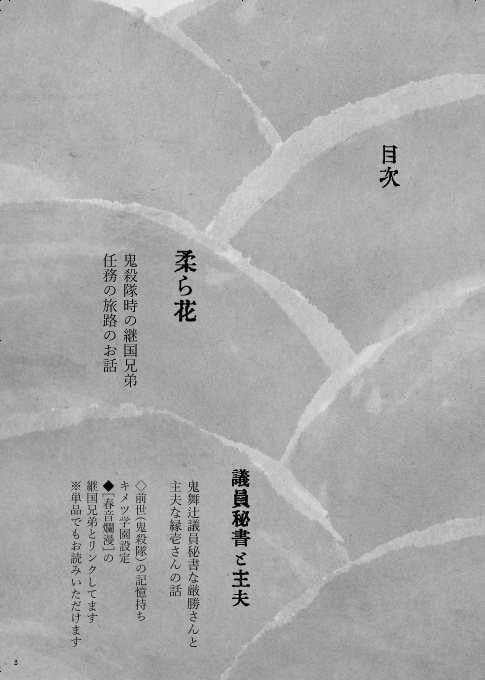 目次
柔ら花
鬼殺隊時の継国兄弟
任務の旅路のお話
議員秘書と主夫
鬼舞辻議員秘書な厳勝さんと
主夫な縁壱さんの話
◇前世(鬼殺隊)の記憶持ち
キメツ学園設定
◆[春音爛漫]の
継国兄弟とリンクしてます
※単品でもお読みいただけます
2